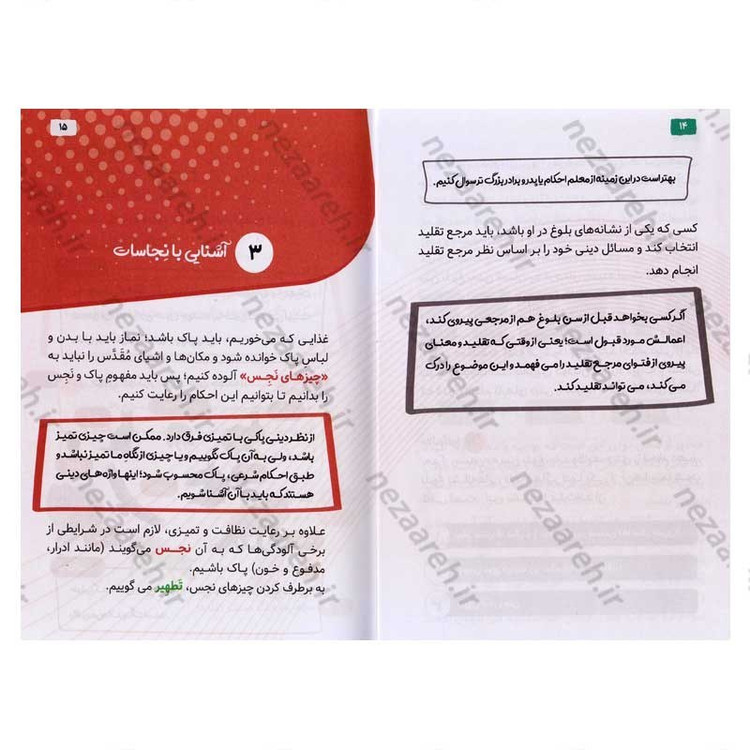 ۱۴
بهتر است در این زمینه از معلم احکام یا پدر و برادر بزرگ تر سوال کنیم.
کسی که یکی از نشانه‌های بلوغ در او باشد، باید مرجع تقلید
انتخاب کند و مسائل دینی خود را بر اساس نظر مرجع تقلید
انجام دهد.
اگر کسی بخواهد قبل از سن بلوغ هم از مرجعی پیروی کند،
اعمالش مورد قبول است؛ یعنی از وقتی که تقلید و معنای
پیروی از فتوای مرجع تقلید را می فهمد و این موضوع را درک
می کند، می تواند تقلید کند.
۱۵
۳ آشنایی با نِجاسات
غذایی که می‌خوریم، باید پاک باشد؛ نماز باید با بدن و
لباس پاک خوانده شود و مکان‌ها و اشیای مُقَدَّس را نباید به
«چیزهای نَجِس» آلوده کنیم؛ پس باید مفهومِ پاک و نَجِس
را بدانیم تا بتوانیم این احکام را رعایت کنیم.
از نظر دینی پاکی با تمیزی فرق دارد. ممکن است چیزی تمیز
باشد، ولی به آن پاک نگوییم و یا چیزی از نگاهِ ما تمیز نباشد و
طبق احکام شرعی، پاک محسوب شود؛ اینها واژه های دینی
هستند که باید با آن آشنا شویم.
علاوه بر رعایت نظافت و تمیزی، لازم است در شرایطی از
برخی آلودگی‌ها که به آن نجس می‌گویند (مانند ادرار،
مدفوع و خون) پاک باشیم.
به برطرف کردن چیزهای نجس، تَطهیر می گوییم.
nezaareh.ir